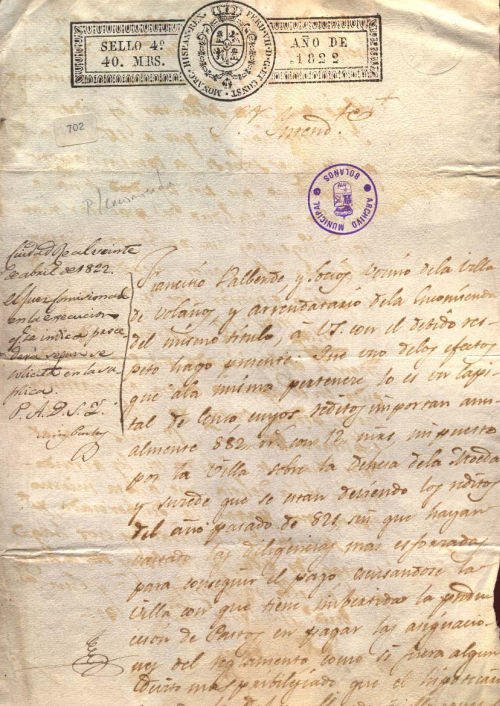 SELLO 4º
40. MRS.
HISPAN. REX. FERD. VII. D. G. ET CONST. MONARC.
AÑO DE
1822
702
Sor Intend.te
P/ Encomienda
ARCHIVO MUNICIPAL
BOLAÑOS
Ciudad Real veinte
de abril de 1822.
El Juez Comisionado
en la execucion
q.e se indica proce
derá segun se
solicita en la su
plica.
P. A. D. S. Y.
Francisco Valbende, y Socios, Vecino de la Villa
de Volaños, y arrendatario de la Encomienda
del mismo titulo, a V.S. con el devido res
peto hago presente: Que uno de los efectos
que a la misma pertenece lo es un Capi
tal de Censo cuyos reditos importan anu
almente 882 r.s con 12 mrs, impuesto
por la Villa sobre la Dehesa de la Moeda
y sucede que se estan deviendo los reditos
del año pasado de 821, sin que hayan
vastado las diligencias mas esforzadas
para conseguir el pago escusandose la
villa con que tiene imbertido la produ
ccion de Pastos en pagar las asignacio
nes del reglamento como si fuera algun
credito mas pribilejiado que el hipotecari